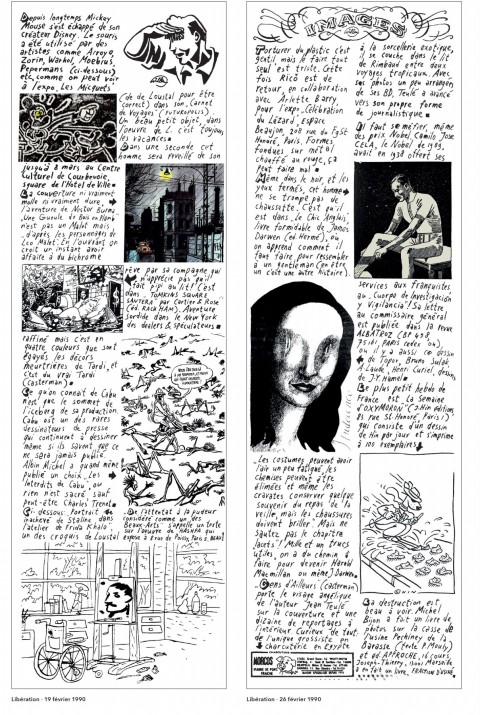 Depuis longtemps Mickey
Mouse s'est échappé de son
créateur Disney. Le souris
a été utilisé par des
artistes comme Arroyo,
Zorin, Warhol, Moebius,
Pepermans (ci-dessous)
etc, comme on peut voir
à l'expo, Les Micquets
jusqu'à 2 mars au Centre
Culturel de Courbevoie,
square de l'Hôtel de Ville
La couverture ni vraiment
molle ni vraiment dure,
l'aventure de Nestor Burma,
Une Gueule de Bois en Plomb
n'est pas un Malet mais
d'après les personnages de
Léo Malet. En l'ouvrant on
croit un instant avoir
affaire à du bichrome
raffiné mais c'est en
quatre couleurs que sont
égayés les décors
meurtrières de Tardi, et
c'est du vrai Tardi
(Casterman).
Ce qu'on connait de Cabu
n'est que le sommet de
l'iceberg de sa production.
Cabu est un des rares
dessinateurs de presse
qui continuent à dessiner
même si ils savent que ce
ne sera jamais publié.
Albin Michel a quand même
publié un choix, Les
Interdits de Cabu, où
rien n'est sacré sauf
peut-être Charles Trenet.
Ci-dessous: Portrait
inachevé de Staline, dans
l'atelier de Frida Kahlo,
un des croquis de Loustal
(de Loustal pour être
correct) dans son, Carnet
de Voyages (FUTUROPOLIS)
Un beau petit objet, dans
l'œuvre de L. c'est toujours
les vacances.
Dans une seconde cet
homme sera réveillé de son
rêve par sa compagne qui
n'apprécie pas qu'il
fait pipi au lit! C'est
dans TOMKINS SQUARE
SAUTERA par Cartier & Rosé
(éd. RACKHAM). Aventure
sordide dans le New York
des dealers & spéculateurs
De l'attentat à la pudeur
considéré comme un des
Beaux-Arts s'appelle un texte
sur l'œuvre de KASHKA qui
expose à 8 rue de Poissy, Paris 5.
Libération - 19 février 1990
IMAGES
Porturer du plastic c'est
gentil mais le faire tout
seul est triste. Cette
fois Rico est de
retour, en collaboration
avec Arlette Barry
pour l'expo Célébration
du Lézard, Espace
Beaujon, 208 rue du Fbg St
Honoré, Paris, Formes
fondues sur métal
chauffé au rouge, ça
peut faire mal
Même dans le noir, et les
yeux fermés, cet homme
ne se trompe pas de
chaussette. C'est qu'il
est dans, le Chic Anglais,
livre formidable de James
Darwen (éd. Hermé), où
on apprend comment il
faut faire pour ressembler
à un gentleman (en être
un c'est une autre histoire).
Les costumes peuvent avoir
l'air un peu fatigué, les
chemises peuvent être
élimées et même les
cravates conserver quelque
souvenir du repas de la
veille, mais les chaussures
doivent briller. Mais ne
sautez pas le chapitre
lacets! Mille et un trucs
utiles, on a du chemin à
faire pour devenir Harold
Macmillan ou même J. Darwen.
Gens d'Ailleurs (Casterman)
porte le visage angélique
de l'auteur Jean Teulé
sur la couverture et une
dizaine de reportages à
l'intérieur. Curieux de tout,
de l'unique grossiste en
charcuterie en Egypte
à la sorcellerie exotique,
il se couche dans le lit
de Rimbaud entre deux
voyages tropicaux. Avec
des photos un peu arrangées
de ses BD, Teulé a avancé
vers son propre forme
de journalistique.
Il faut se méfier, même
des prix Nobel, Camilo José
CELA, le Nobel de 1989,
avait en 1938 offert ses
services aux franquistes
au, Cuerpo de Investigación
y Vigilancia. Sa lettre
au commissaire général
est publiée dans la revue
ALBATROZ (BP 404,
75161, PARIS cedex 04),
où il y a aussi de dessins
de Topor, Bruno Sulak,
A. Laude, Henri Curiel, dessins
de J.-T. Hamel
Le plus petit hebdo de
France est La Semaine
d'OXYMORON (2.Hin éditions
81 rue St. Honoré, Paris 1)
qui consiste d'un dessin
de Hin par jour et s'imprime
à 100 exemplaires
La destruction est
beau à voir. Michel
Bijon a fait un livre de
photos sur la casse de
l'usine Pechiney de la
Barasse (texte P. Mouly)
et éd. APPROCHE, 16 cours
Joseph-Thierry, 13001 Marseille
MORCOS
Libération - 26 février 1990